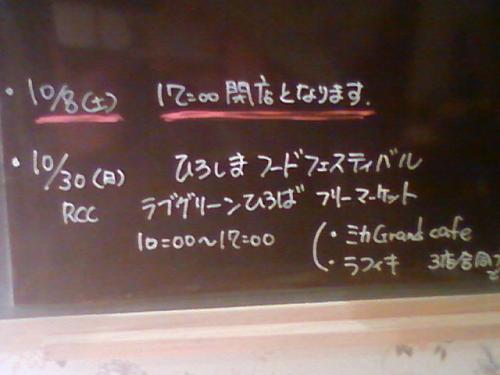 ・10/8(土) 17=00 閉店となります.
・10/30(日) ひろしま フードフェスティバル
RCC ラブグリーンひろば フリーマーケット
10=00〜17=00 (・ミカGrand cafe
・ラフィキ 3店合同